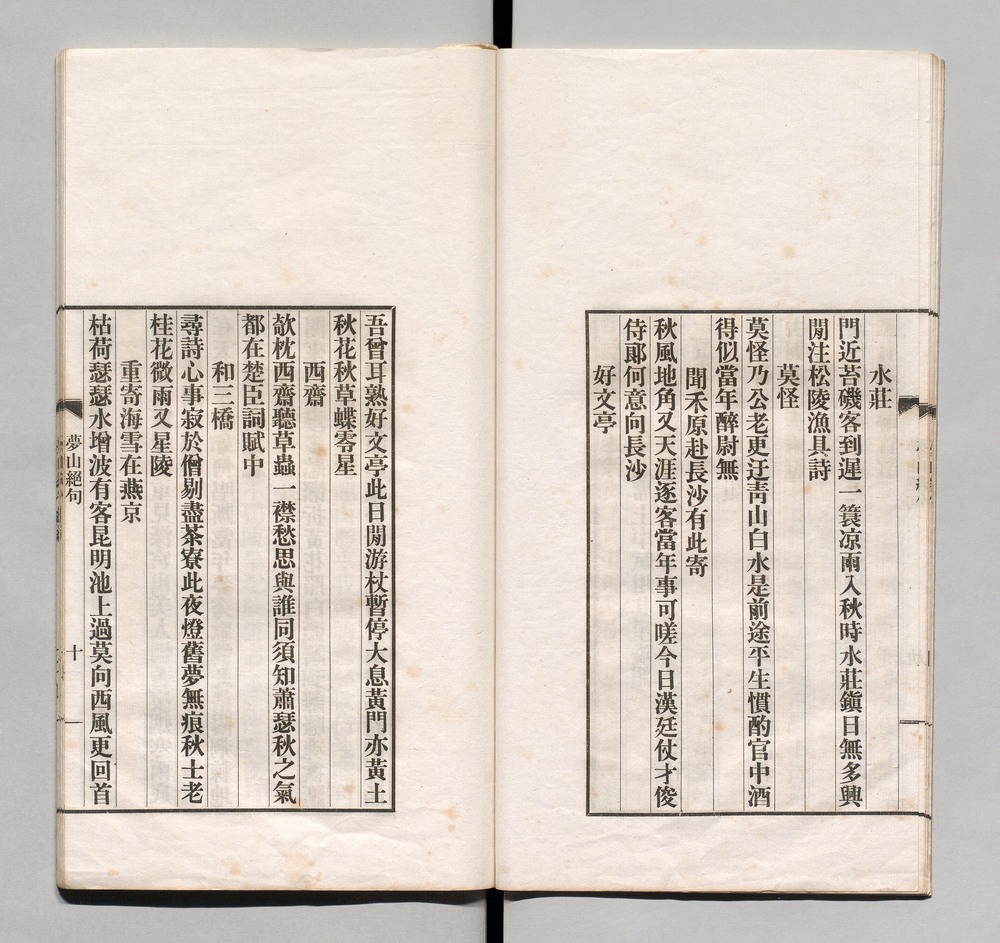 水莊
門近苔磯客到遲一簑凉雨入秋時水莊鎭日無多興
閒注松陵漁具詩
莫怪
莫怪乃公老更迂靑山白水是前途平生慣酌官中酒
得似當年醉尉無
聞禾原赴長沙有此寄
秋風地角又天涯逐客當年事可嗟今日漢廷仗才俊
侍郞何意向長沙
好文亭
吾曾耳熟好文亭此日閒游杖暫停大息黃門亦黃土
秋花秋草蝶零星
西齋
欹枕西齋聽草蟲一襟愁思與誰同須知蕭瑟秋之氣
都在楚臣詞賦中
和三橋
尋詩心事寂於僧剔盡茶寮此夜燈舊夢無痕秋士老
桂花微雨又星陵
重寄海雪在燕京
枯荷瑟瑟水增波有客昆明池上過莫向西風更回首
夢山絕句
十